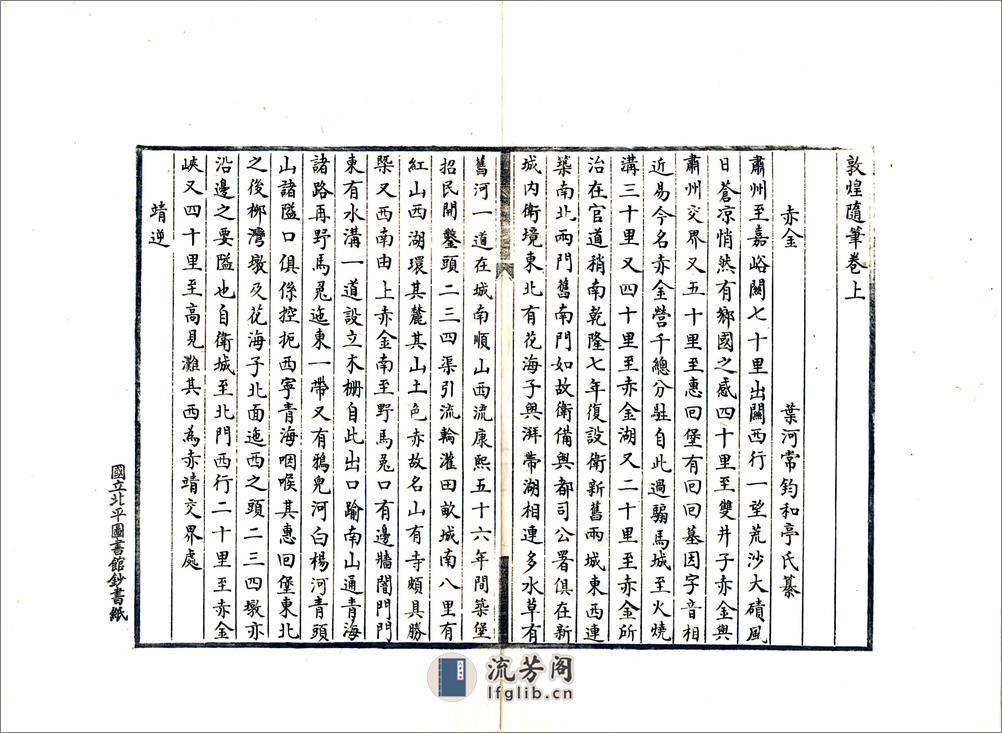 敦煌隨筆卷上
葉河常鈞和亭氏纂
赤金
肅州至嘉峪關七十里出關西行一望荒沙大磧風
日蒼凉悄然有鄉國之感四十里至雙井子赤金與
肅州交界又五十里至惠回堡有回回墓因字音相
近易今名赤金營千總分駐自此過騸馬城至火燒
溝三十里又四十里至赤金湖又二十里至赤金所
治在官道稍南乾隆七年復設衛新舊兩城東西連
築南北兩門舊南門如故衛備與都司公署俱在新
城內衛境東北有花海子與湃帶湖相連多水草有
舊河一道在城南順山西流康熙五十六年間築堡
招民開鑿頭二三四渠引流輪灌田畝城南八里有
紅山西湖環其麓其山土色赤故名山有寺頗具勝
槩又西南由上赤金南至野馬兔口有邊牆闇門門
東有水溝一道設立木柵自此出口踰南山通青海
諸路再野馬兔迤東一帶又有鴉兒河白楊河青頭
山諸隘口俱係控扼西寧青海咽喉其惠回堡東北
之後柳灣墩及花海子北面迤西之頭二三四墩亦
沿邊之要隘也自衛城至北門西行二十里至赤金
峽又四十里至高見灘其西為赤靖交界處
靖逆
國立北平圖書館鈔書紙
流芳阁
lfglib.cn